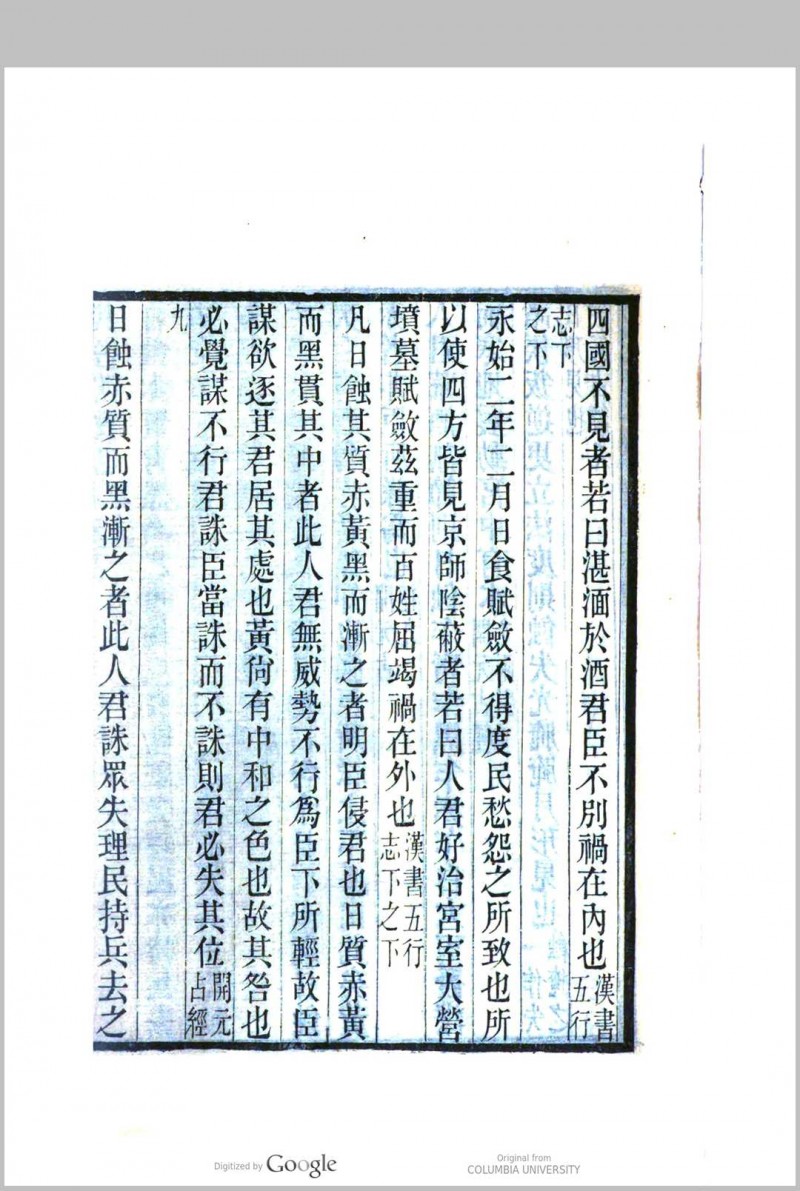 四國不見者若曰湛湎於酒君臣不別禍在內也漢書五行
志下之下
永始二年二月日食賦斂不得度民愁怨之所致也所
以使四方皆見京師陰蔽者若曰人君好治宮室大營
墳墓賦斂茲重而百姓屈竭禍在外也漢書五行志下之下
凡日蝕其質赤黃黑而漸之者明臣侵君也日質赤黃
而黑貫其中者此人君無威勢不行爲臣下所輕故臣
謀欲逐其君居其處也黃尙有中和之色也故其咎也
必覺謀不行君誅臣當誅而不誅則君必失其位開元占經
九
日蝕赤質而黑漸之者此人君誅眾失理民持兵去之
Digitized by Google
Original from
COLUMBIA UNIVERSITY